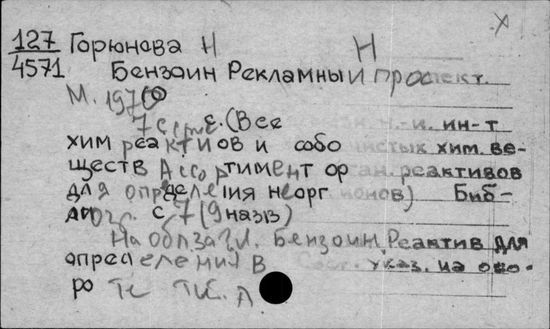 127 Горюнова Н Н
4571 Бензоин Рекламный проспект.
М. 1970
7 с (Все н.-и. ин-т
хим реактивов и особо чистых хим. ве-
ществ Ассортимент орган. реактивов
для определения неорг ионов) Биб-
лиогр. с 7 (9 назв)
На обл загл. Бензоин. Реактив для
определения в указ. на обо-
ро